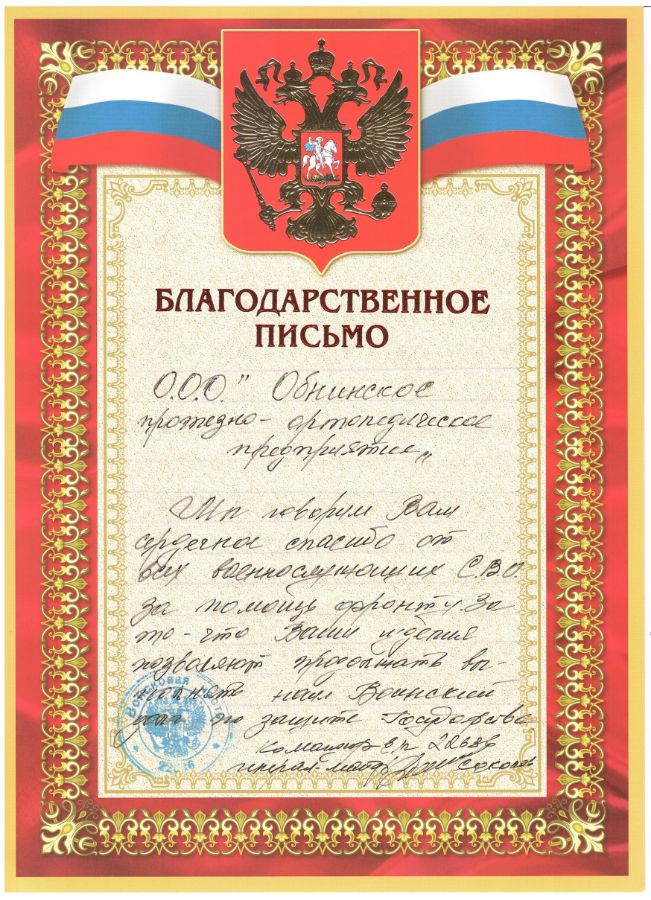 БЛАГОДАРСТВЕННОЕ
ПИСЬМО
О.О.О." Обнинское
протезно-ортопедическое
предприятие„
Мы говорим Вам
сердечное спасибо от
всех военнослужащих С.В.О.
за помощь фронту. За
то-что Ваши изделия
позволяют продолжать вы-
полнять нам Воинский
долг по защите Государства
Командир
генерал-майор Соколов